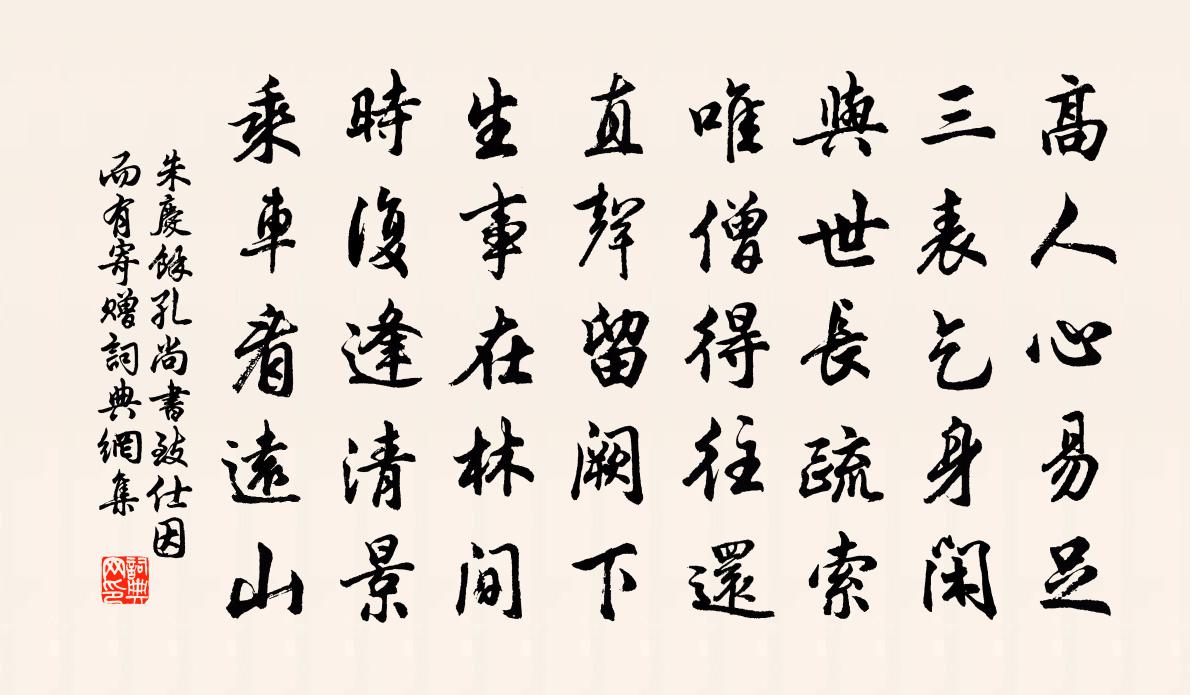 高人心易足
三表乞身閑
與世長疏索
唯僧得往還
直聲留闕下
生事在林間
時復逢清景
乘車看遠山
朱慶餘孔尚書致仕因
而有寄贈詞典網集
詞典網印